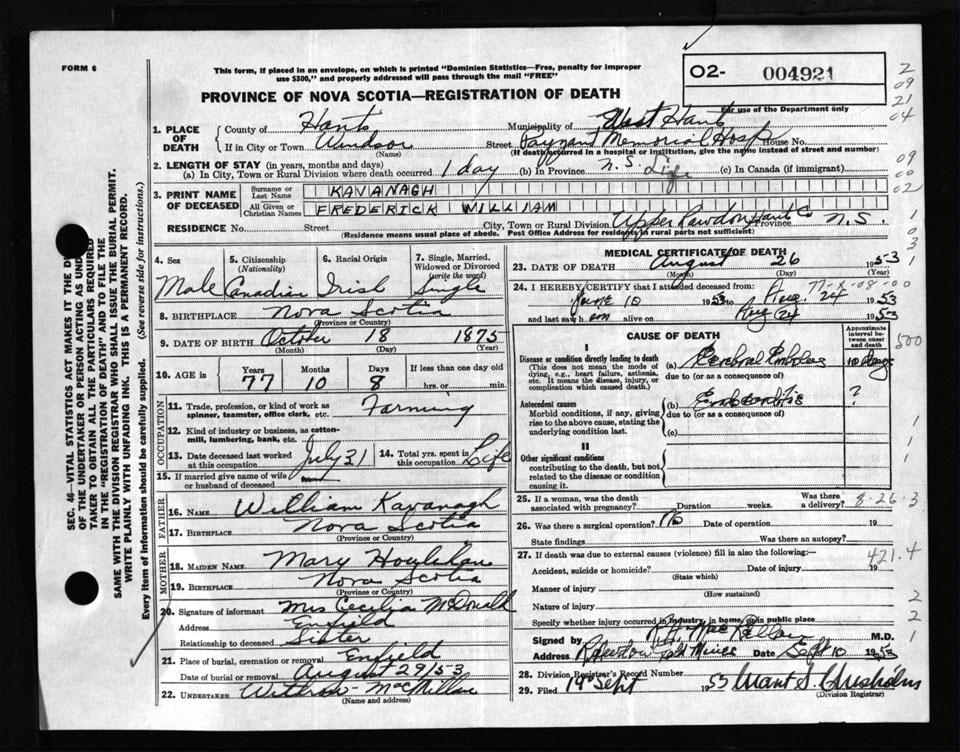 FORM 6
This form, if placed in an envelope, on which is printed "Dominion Statistics—Free, penalty for improper
use $300," and properly addressed will pass through the mail "FREE"
O2- 004921
PROVINCE OF NOVA SCOTIA—REGISTRATION OF DEATH
For use of the Department only
2
09
21
04
09
00
02
1
0
3
1
1. PLACE OF DEATH
County of Hants Municipality of West Hants
If in City or Town Windsor Street Payzant Memorial Hosp House No.
(Name) (If death occurred in a hospital or institution, give the name instead of street and number)
2. LENGTH OF STAY (in years, months and days)
(a) In City, Town or Rural Division where death occurred 1 day (b) In Province N.S. Life (c) In Canada (if immigrant)
3. PRINT NAME OF DECEASED
Surname or Last Name KAVANAGH
All Given or Christian Names FREDERICK WILLIAM
RESIDENCE No. Street City, Town or Rural Division Upper Rawdon Hants Co Province N.S.
(Residence means usual place of abode. Post Office Address for residents in rural parts not sufficient)
4. Sex Male
5. Citizenship (Nationality) Canadian
6. Racial Origin Irish
7. Single, Married, Widowed or Divorced (write the word) Single
8. BIRTHPLACE Nova Scotia
(Province or Country)
9. DATE OF BIRTH October 18 1875
(Month) (Day) (Year)
10. AGE in Years Months Days If less than one day old
77 10 8 hrs. or min.
OCCUPATION
11. Trade, profession, or kind of work as spinner, teamster, office clerk, etc. Farming
12. Kind of industry or business, as cotton-mill, lumbering, bank, etc.
13. Date deceased last worked at this occupation July 31
14. Total yrs. spent in this occupation Life
15. If married give name of wife or husband of deceased
FATHER
16. NAME William Kavanagh
17. BIRTHPLACE Nova Scotia
(Province or Country)
MOTHER
18. MAIDEN NAME Mary
19. BIRTHPLACE Nova Scotia
(Province or Country)
20. Signature of informant Mrs Cecilia McDonald
Address Enfield
Relationship to deceased Sister
21. Place of burial, cremation or removal Enfield
Date of burial or removal August 29/53
22. UNDERTAKER Withrow - MacMillan
(Name and address)
MEDICAL CERTIFICATE OF DEATH
23. DATE OF DEATH August 26 1953
(Month) (Day) (Year)
77-X-08-00
24. I HEREBY CERTIFY that I attended deceased from:
June 10 1953 to Aug. 24 1953
and last saw h em alive on Aug 24 1953
CAUSE OF DEATH
Approximate interval between onset and death
I
Disease or condition directly leading to death
(This does not mean the mode of dying, e.g., heart failure, asthenia, etc. It means the disease, injury, or complication which caused death.)
(a) Cerebral Embolus 10 days
due to (or as a consequence of)
500
Antecedent causes
Morbid conditions, if any, giving rise to the above cause, stating the underlying condition last.
(b) Endocarditis ?
due to (or as a consequence of)
(c)
II
Other significant conditions
contributing to the death, but not related to the disease or condition causing it.
1
1
1
25. If a woman, was the death associated with pregnancy? Duration weeks. Was there a delivery?
8-26-3
26. Was there a surgical operation? No Date of operation 19
State findings Was there an autopsy?
27. If death was due to external causes (violence) fill in also the following:—
421.4
Accident, suicide or homicide? Date of injury 19
(State which)
Manner of injury
(How sustained)
Nature of injury
Specify whether injury occurred in industry, in home, or in public place
2
2
1
Signed by M.D.
Address Date Sept 10 1953
28. Division Registrar's Record Number
29. Filed 19 Sept 1953 Grant S. Chisholm
(Division Registrar)
SEC. 46—VITAL STATISTICS ACT MAKES IT THE DU
OF THE UNDERTAKER OR PERSON ACTING AS UND
TAKER TO OBTAIN ALL THE PARTICULARS REQUIRED
IN THE "REGISTRATION OF DEATH" AND TO FILE THE
SAME WITH THE DIVISION REGISTRAR WHO SHALL ISSUE THE BURIAL PERMIT.
WRITE PLAINLY WITH UNFADING INK. THIS IS A PERMANENT RECORD.
Every item of information should be carefully supplied. (See reverse side for instructions.)